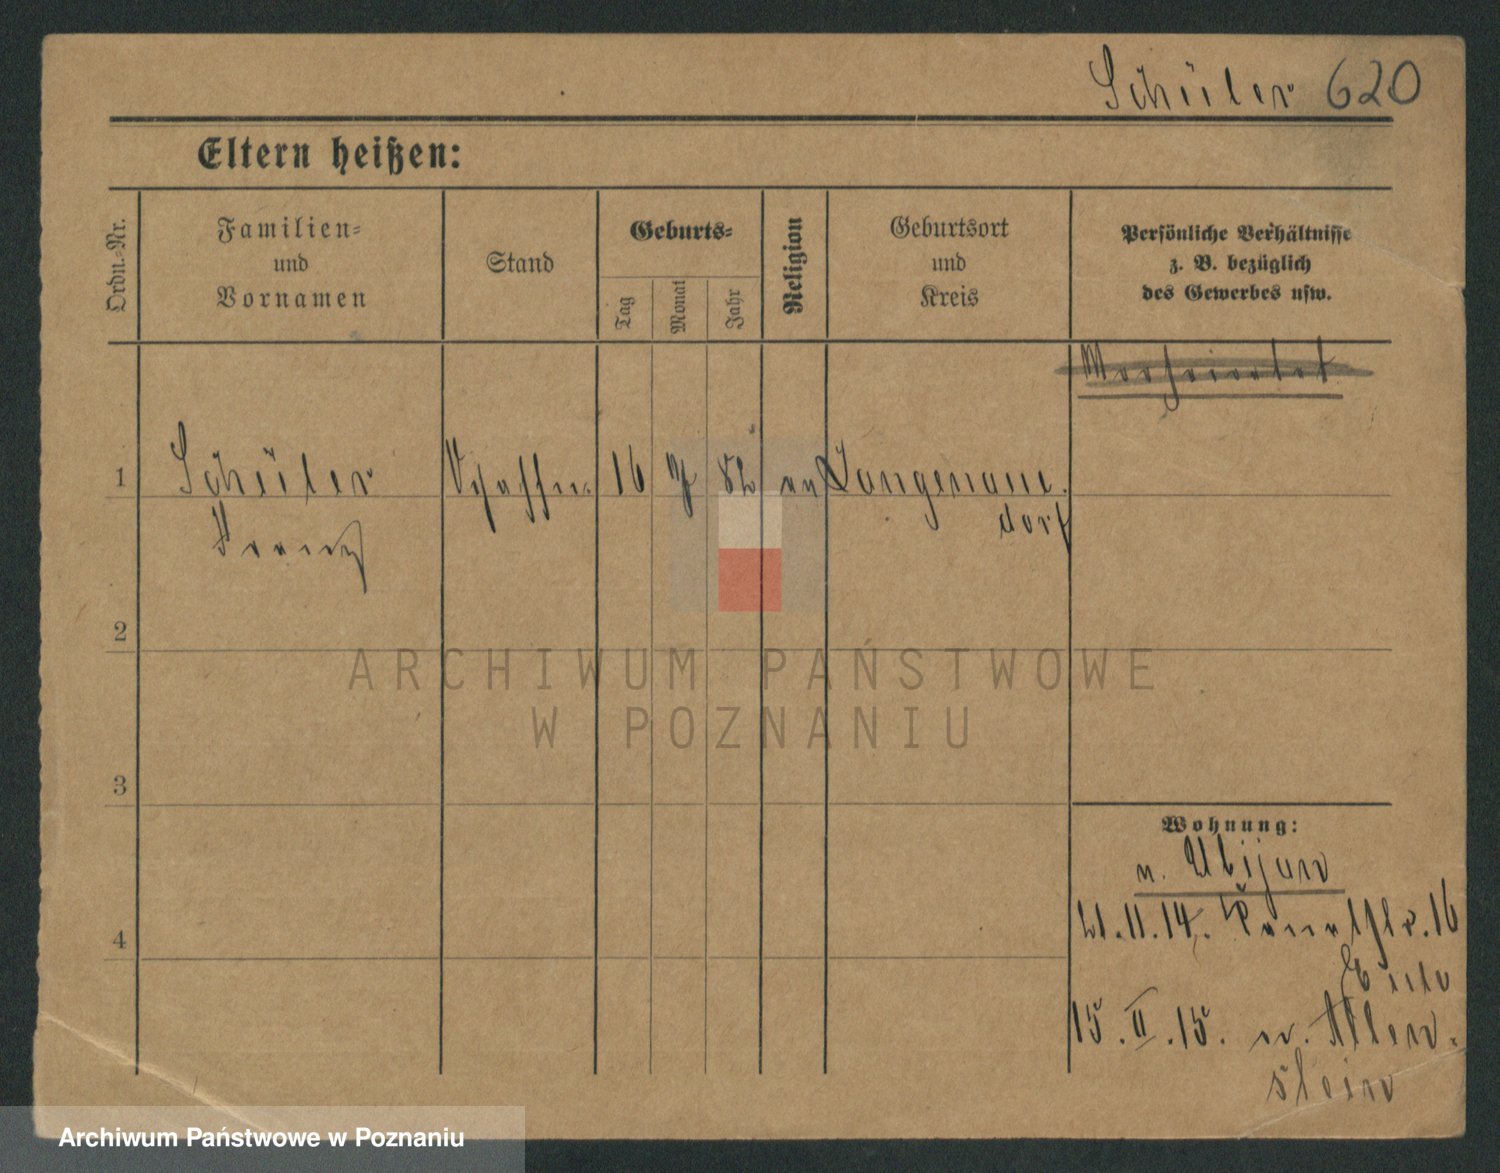 Schüler 620
Eltern heißen:
Ordn.-Nr.
Familien-
und
Vornamen
Stand
Geburts-
Tag
Monat
Jahr
Religion
Geburtsort
und
Kreis
Persönliche Verhältnisse
z. B. bezüglich
des Gewerbes usw.
1 Schüler 16 82
Franz dorf
2
ARCHIWUM PAŃSTWOWE
W POZNANIU
3
Wohnung:
n.
4
21.11.14. 16
15.II.15. n. Allen-
stein
Archiwum Państwowe w Poznaniu